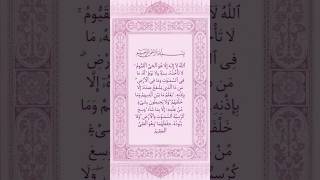 بِسْمِ اللَّهِ الرَّحْمَٰنِ الرَّحِيمِ
اللَّهُ لَا إِلَٰهَ إِلَّا هُوَ الْحَيُّ الْقَيُّومُ
لَا تَأْخُذُهُ سِنَةٌ وَلَا نَوْمٌ لَهُ مَا
فِي السَّمَٰوَٰتِ وَمَا فِي الْأَرْضِ
مَن ذَا الَّذِي يَشْفَعُ عِندَهُ إِلَّا
بِإِذْنِهِ يَعْلَمُ مَا بَيْنَ أَيْدِيهِمْ وَمَا
خَلْفَهُمْ وَلَا يُحِيطُونَ بِشَيْءٍ
مِّنْ عِلْمِهِ إِلَّا بِمَا شَاءَ وَسِعَ
كُرْسِيُّهُ السَّمَٰوَٰتِ وَالْأَرْضَ وَلَا
يَئُودُهُ حِفْظُهُمَا وَهُوَ الْعَلِيُّ
الْعَظِيمُ